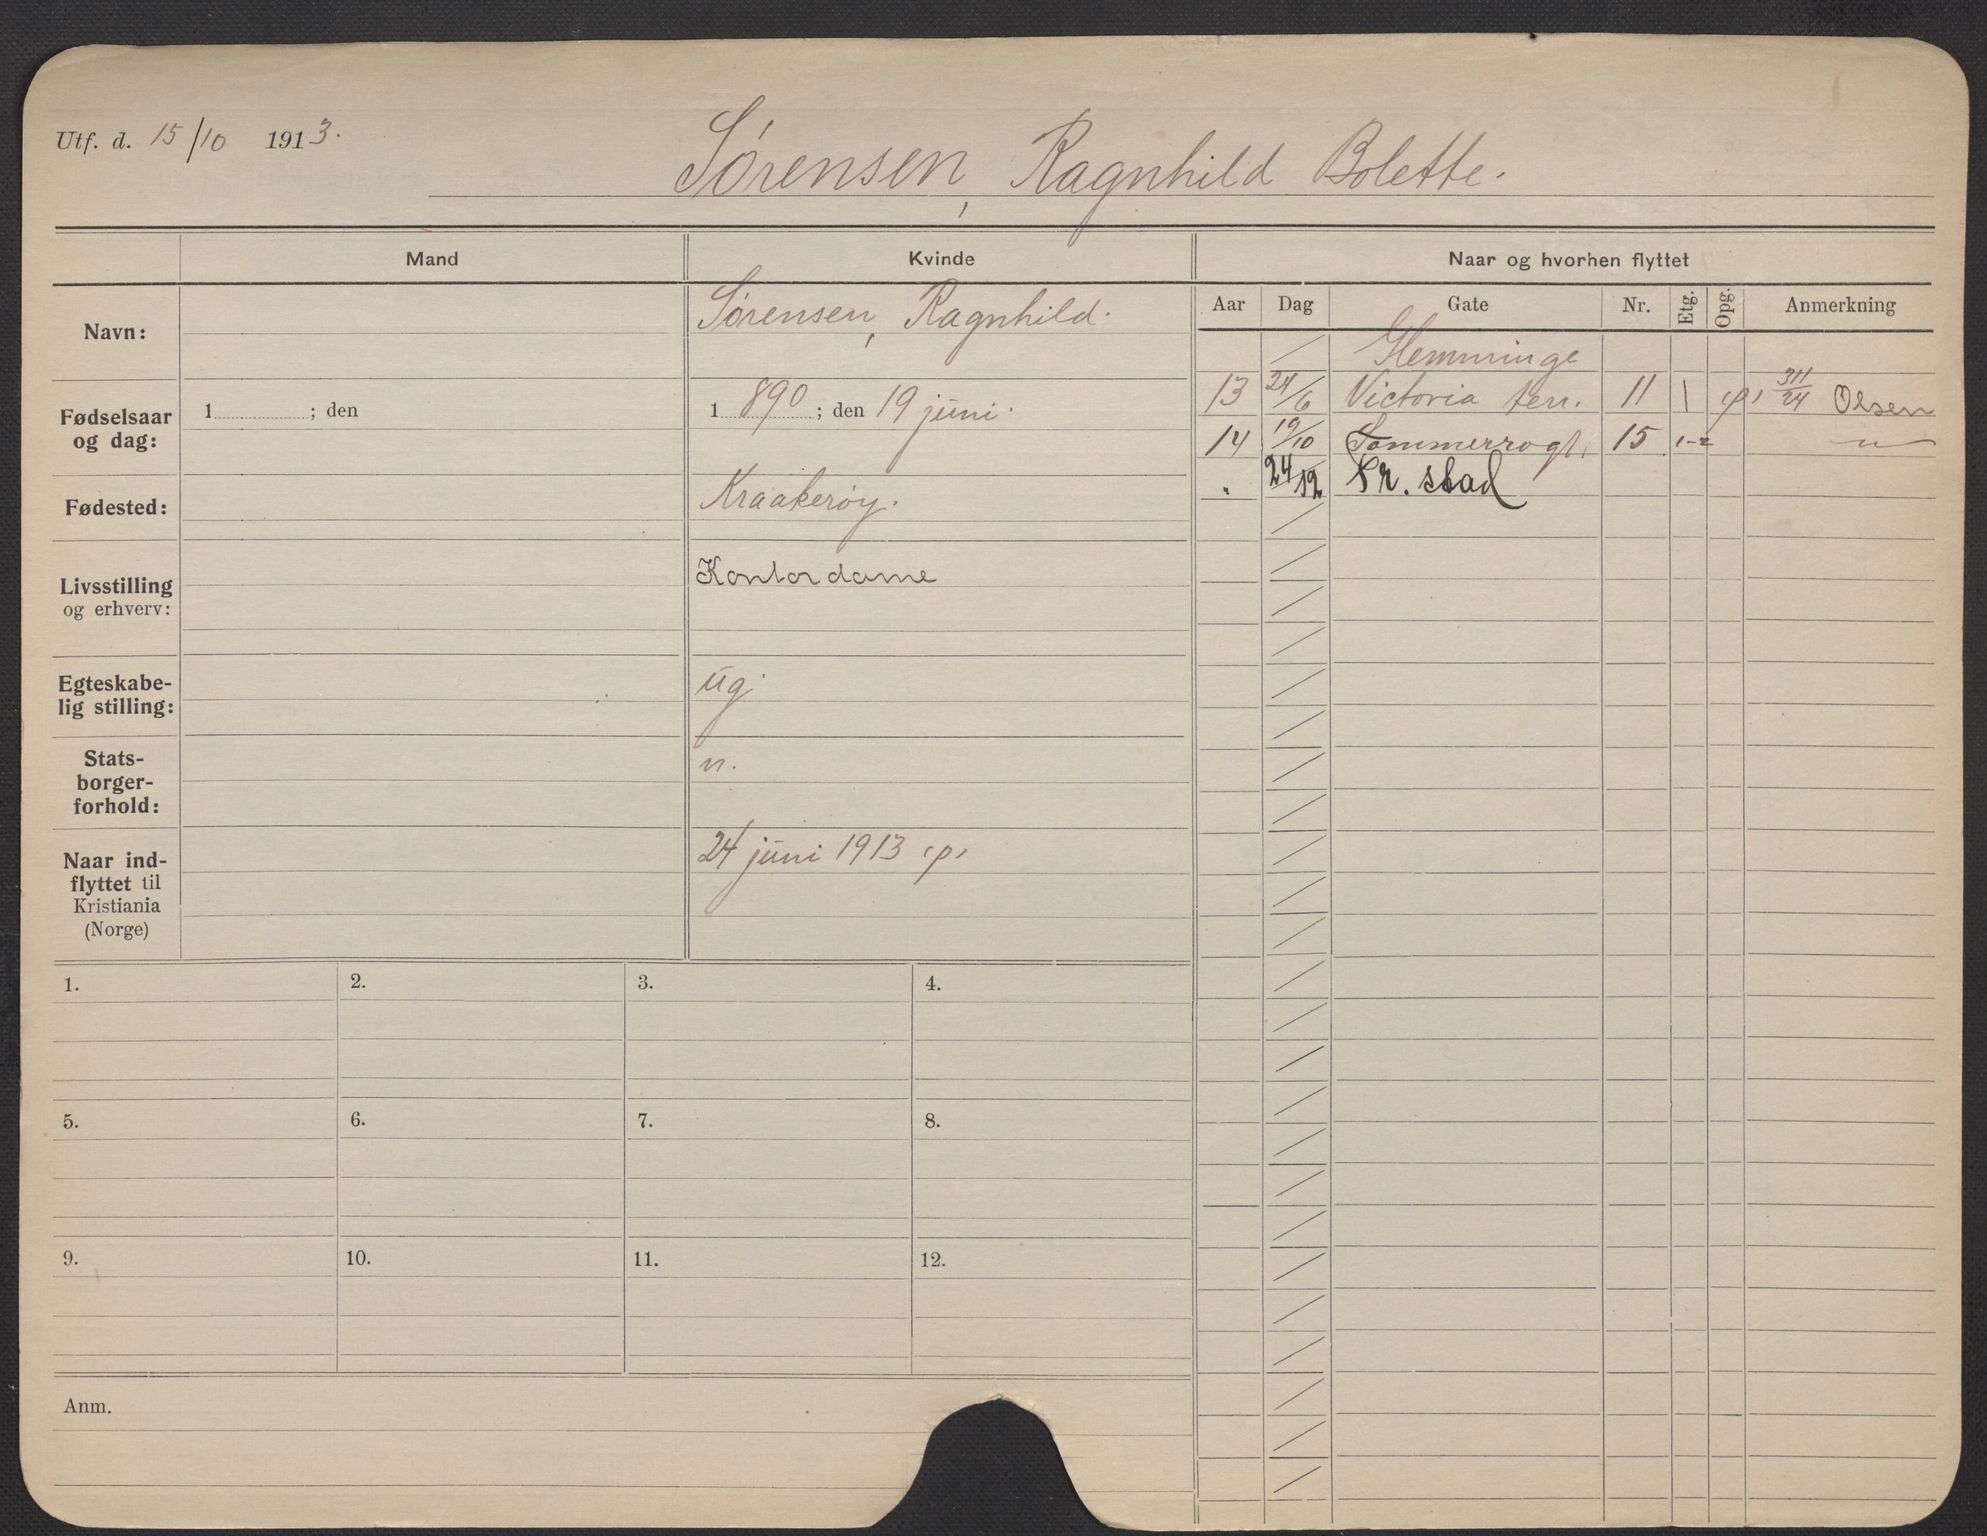 Utf. d. 15/10 1913.
Sørensen, Ragnhild Bolette.
Mand Kvinde Naar og hvorhen flyttet
Aar Dag Gate Nr. Etg. Opg. Anmerkning
Navn: Sørensen, Ragnhild.
Glemminge
13 24/6 Victoria terr. 11 1 31/1 24 Olsen
14 19/10 Sommerrogt. 15 1-2 — " —
" 24/12 Fr. stad
Fødselsaar og dag: 1 ; den 1 890 ; den 19 juni.
Fødested: Kraakerøy.
Livsstilling og erhverv: Kontordame
Egteskabe-
lig stilling: ug.
Stats-
borger-
forhold: n.
Naar ind-
flyttet til
Kristiania
(Norge) 24 juni 1913 (p)
1. 2. 3. 4.
5. 6. 7. 8.
9. 10. 11. 12.
Anm.